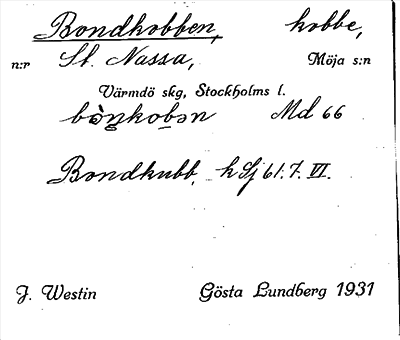 Bondkobben, kobbe,
n:r St. Nassa, Möja s:n
Värmdö skg, Stockholms l.
Md 66
Bondkubb, h Sj 61. 7. VI.
J. Westin Gösta Lundberg 1931